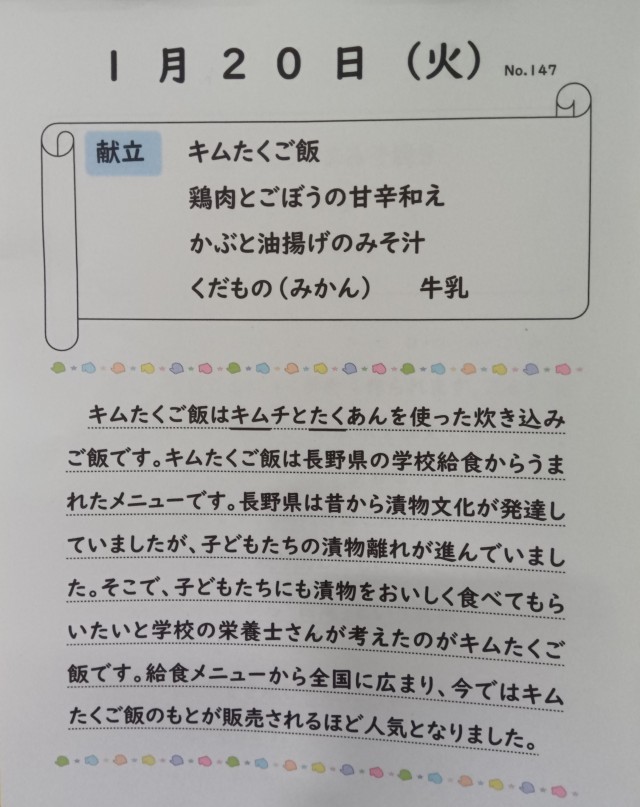 1月20日（火） No.147
献立 キムたくご飯
鶏肉とごぼうの甘辛和え
かぶと油揚げのみそ汁
くだもの（みかん） 牛乳
キムたくご飯はキムチとたくあんを使った炊き込み
ご飯です。キムたくご飯は長野県の学校給食からうま
れたメニューです。長野県は昔から漬物文化が発達し
ていましたが、子どもたちの漬物離れが進んでいまし
た。そこで、子どもたちにも漬物をおいしく食べてもら
いたいと学校の栄養士さんが考えたのがキムたくご
飯です。給食メニューから全国に広まり、今ではキム
たくご飯のもとが販売されるほど人気となりました。